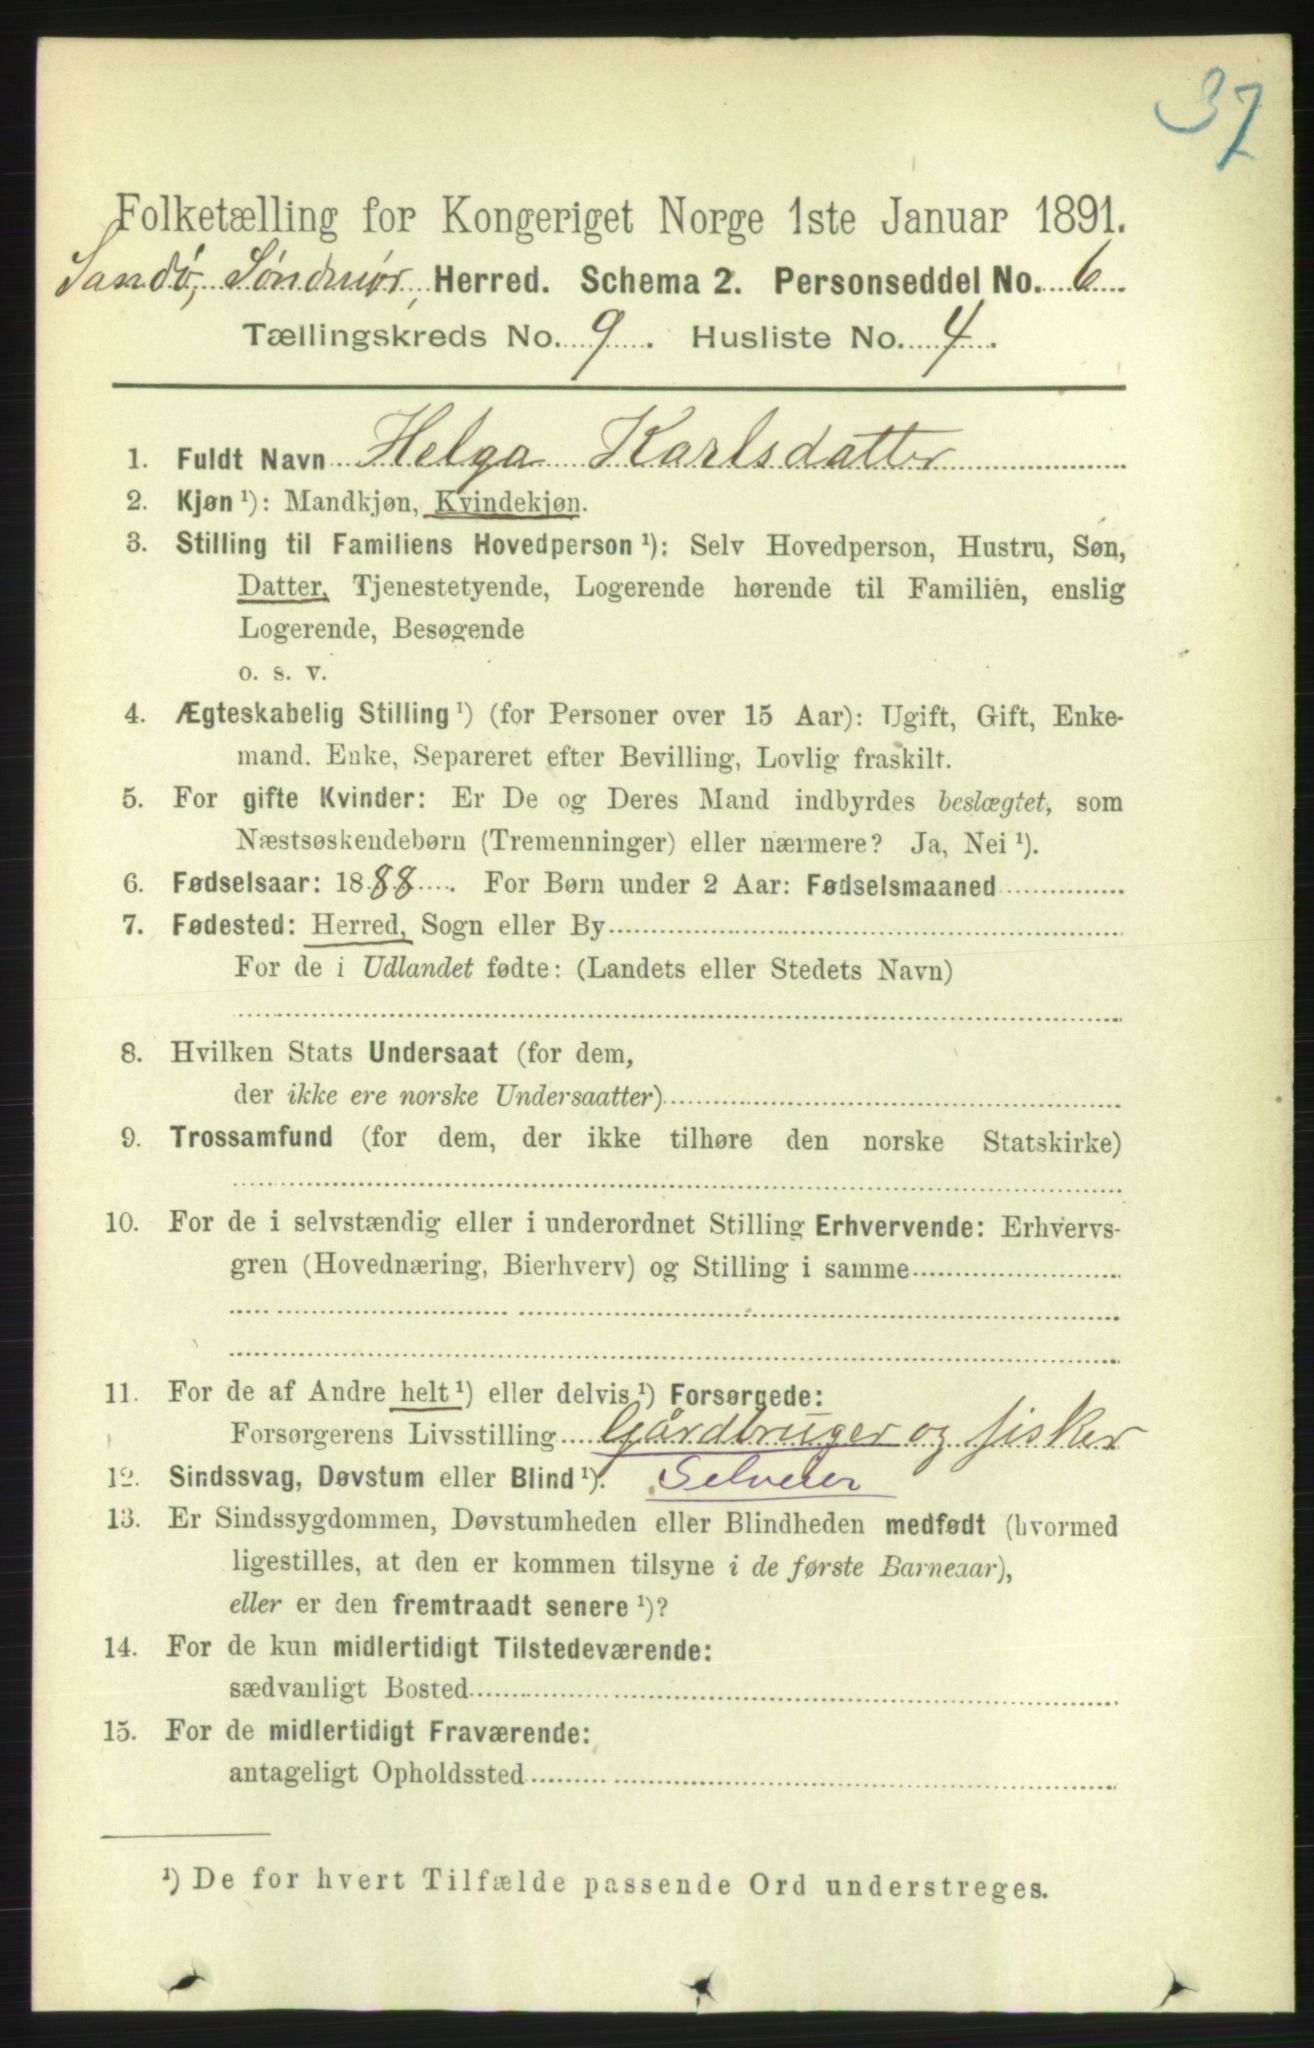 37
Folketælling for Kongeriget Norge 1ste Januar 1891.
Sandø, Søndmør, Herred. Schema 2. Personseddel No. 6
Tællingskreds No. 9. Husliste No. 4.
1. Fuldt Navn Helga Karlsdatter
2. Kjøn ¹): Mandkjøn, Kvindekjøn.
3. Stilling til Familiens Hovedperson ¹): Selv Hovedperson, Hustru, Søn,
Datter, Tjenestetyende, Logerende hørende til Familien, enslig
Logerende, Besøgende
o. s. v.
4. Ægteskabelig Stilling ¹) (for Personer over 15 Aar): Ugift, Gift, Enke-
mand. Enke, Separeret efter Bevilling, Lovlig fraskilt.
5. For gifte Kvinder: Er De og Deres Mand indbyrdes beslægtet, som
Næstsøskendebørn (Tremenninger) eller nærmere? Ja, Nei ¹).
6. Fødselsaar: 1888. For Børn under 2 Aar: Fødselsmaaned
7. Fødested: Herred, Sogn eller By
For de i Udlandet fødte: (Landets eller Stedets Navn)
8. Hvilken Stats Undersaat (for dem,
der ikke ere norske Undersaatter)
9. Trossamfund (for dem, der ikke tilhøre den norske Statskirke)
10. For de i selvstændig eller i underordnet Stilling Erhvervende: Erhvervs-
gren (Hovednæring, Bierhverv) og Stilling i samme
11. For de af Andre helt ¹) eller delvis ¹) Forsørgede:
Forsørgerens Livsstilling Gårdbruger og fisker
12. Sindssvag, Døvstum eller Blind ¹). Selveier
13. Er Sindssygdommen, Døvstumheden eller Blindheden medfødt (hvormed
ligestilles, at den er kommen tilsyne i de første Barneaar),
eller er den fremtraadt senere ¹)?
14. For de kun midlertidigt Tilstedeværende:
sædvanligt Bosted
15. For de midlertidigt Fraværende:
antageligt Opholdssted
¹) De for hvert Tilfælde passende Ord understreges.